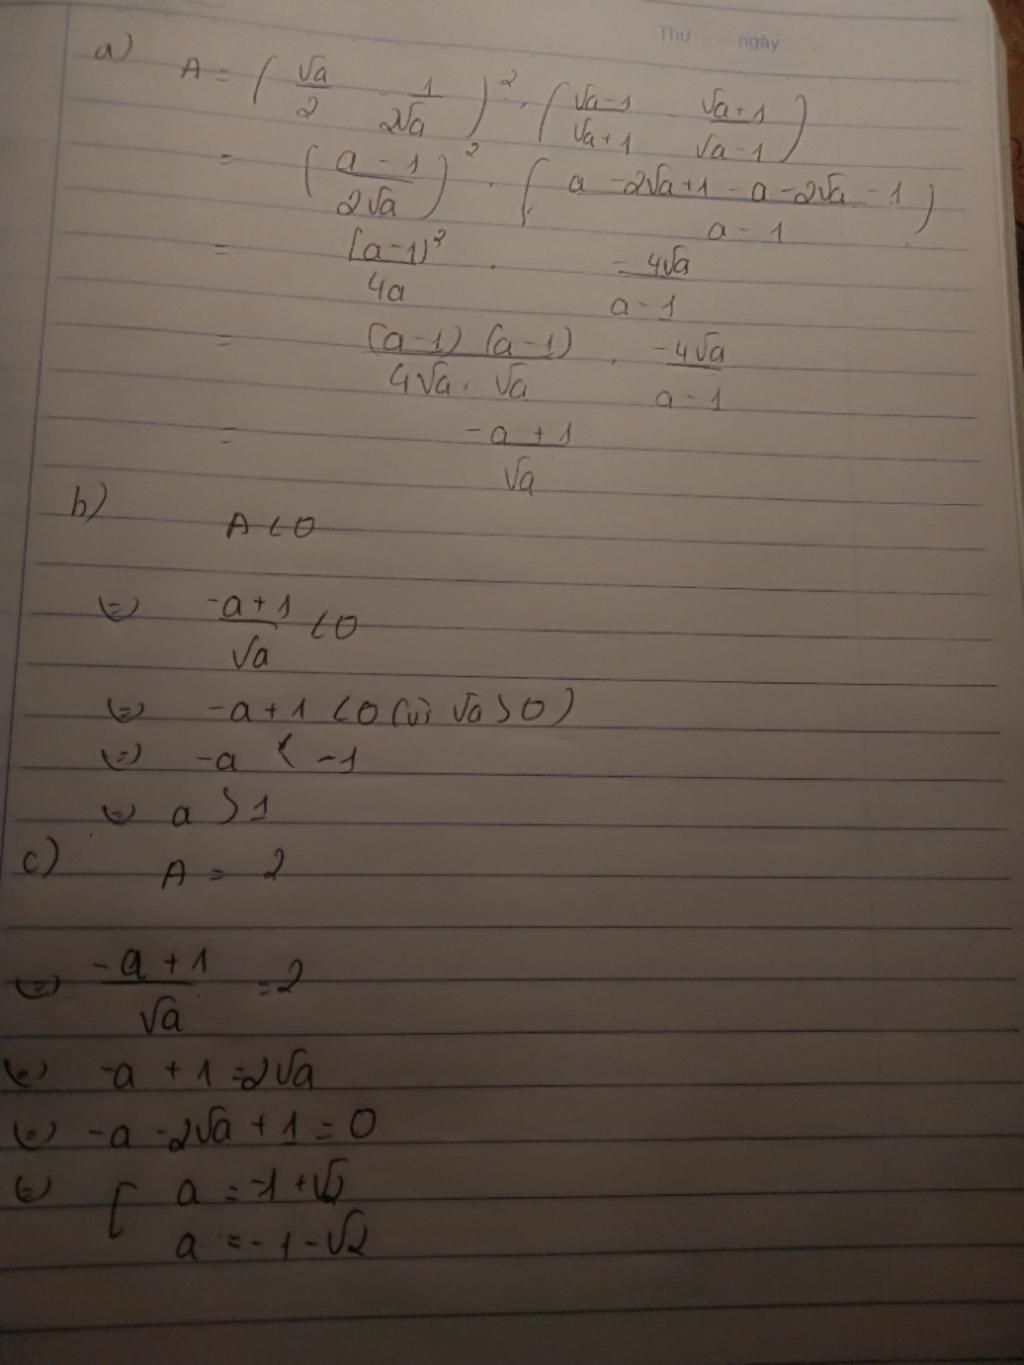 Thứ ngày
a) A = (√a/2 - 1/2√a)² . (√a-1/√a+1 - √a+1/√a-1)
= (a-1/2√a)² . (a-2√a+1-a-2√a-1/a-1)
= (a-1)²/4a . -4√a/a-1
= (a-1)(a-1)/4√a.√a . -4√a/a-1
= -a+1/√a
b) A<0
(=) -a+1/√a <0
(=) -a+1 <0 (vì √a>0)
(=) -a < -1
(=) a > 1
c) A = 2
(=) -a+1/√a =2
(=) -a+1=2√a
(=) -a-2√a+1=0
(=) [ a = -1+√2
a = -1-√2